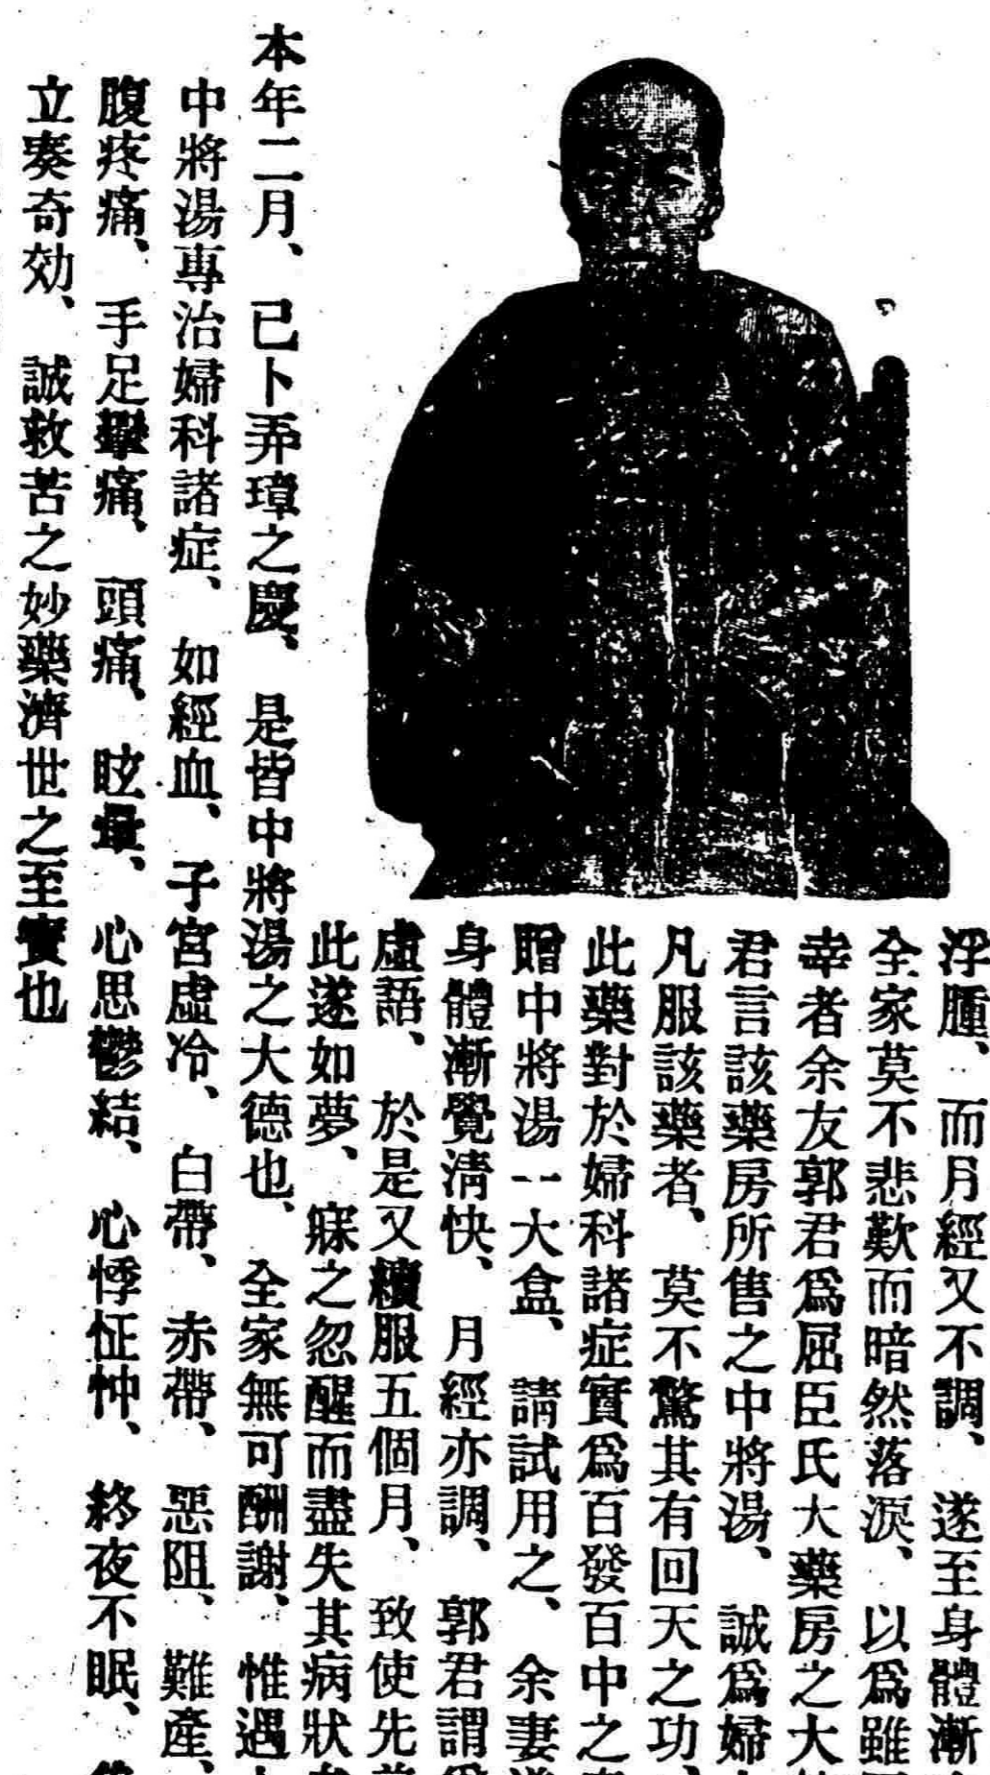 浮腫、而月經又不調、遂至身體漸
全家莫不悲歎而暗然落淚、以爲雖
幸者余友郭君爲屈臣氏大藥房之大
君言該藥房所售之中將湯、誠爲婦
凡服該藥者、莫不驚其有回天之功、
此藥對於婦科諸症實爲百發百中之
贈中將湯一大盒、請試用之、余妻
身體漸覺淸快、月經亦調、郭君謂
虛語、於是又續服五個月、致使先
此遂如夢、寐之忽醒而盡失其病狀
本年二月、已卜弄璋之慶、是皆中將湯之大德也、全家無可酬謝、惟遇
中將湯專治婦科諸症、如經血、子宮虛冷、白帶、赤帶、惡阻、難產、
腹疼痛、手足攣痛、頭痛、眩暈、心思鬱結、心悸怔忡、終夜不眠、
立奏奇効、誠救苦之妙藥濟世之至寶也